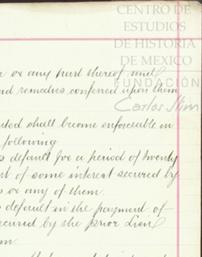 CENTRO DE
ESTUDIOS
DE HISTORIA
DE MEXICO
FUNDACIÓN
Carlos Slim
or any part thereof and
and remedies conferred upon them
shall become enforceable in
following
default for a period of twenty
of some interest secured by
s or any of them.
default in the payment of
secured by the Prior Lien